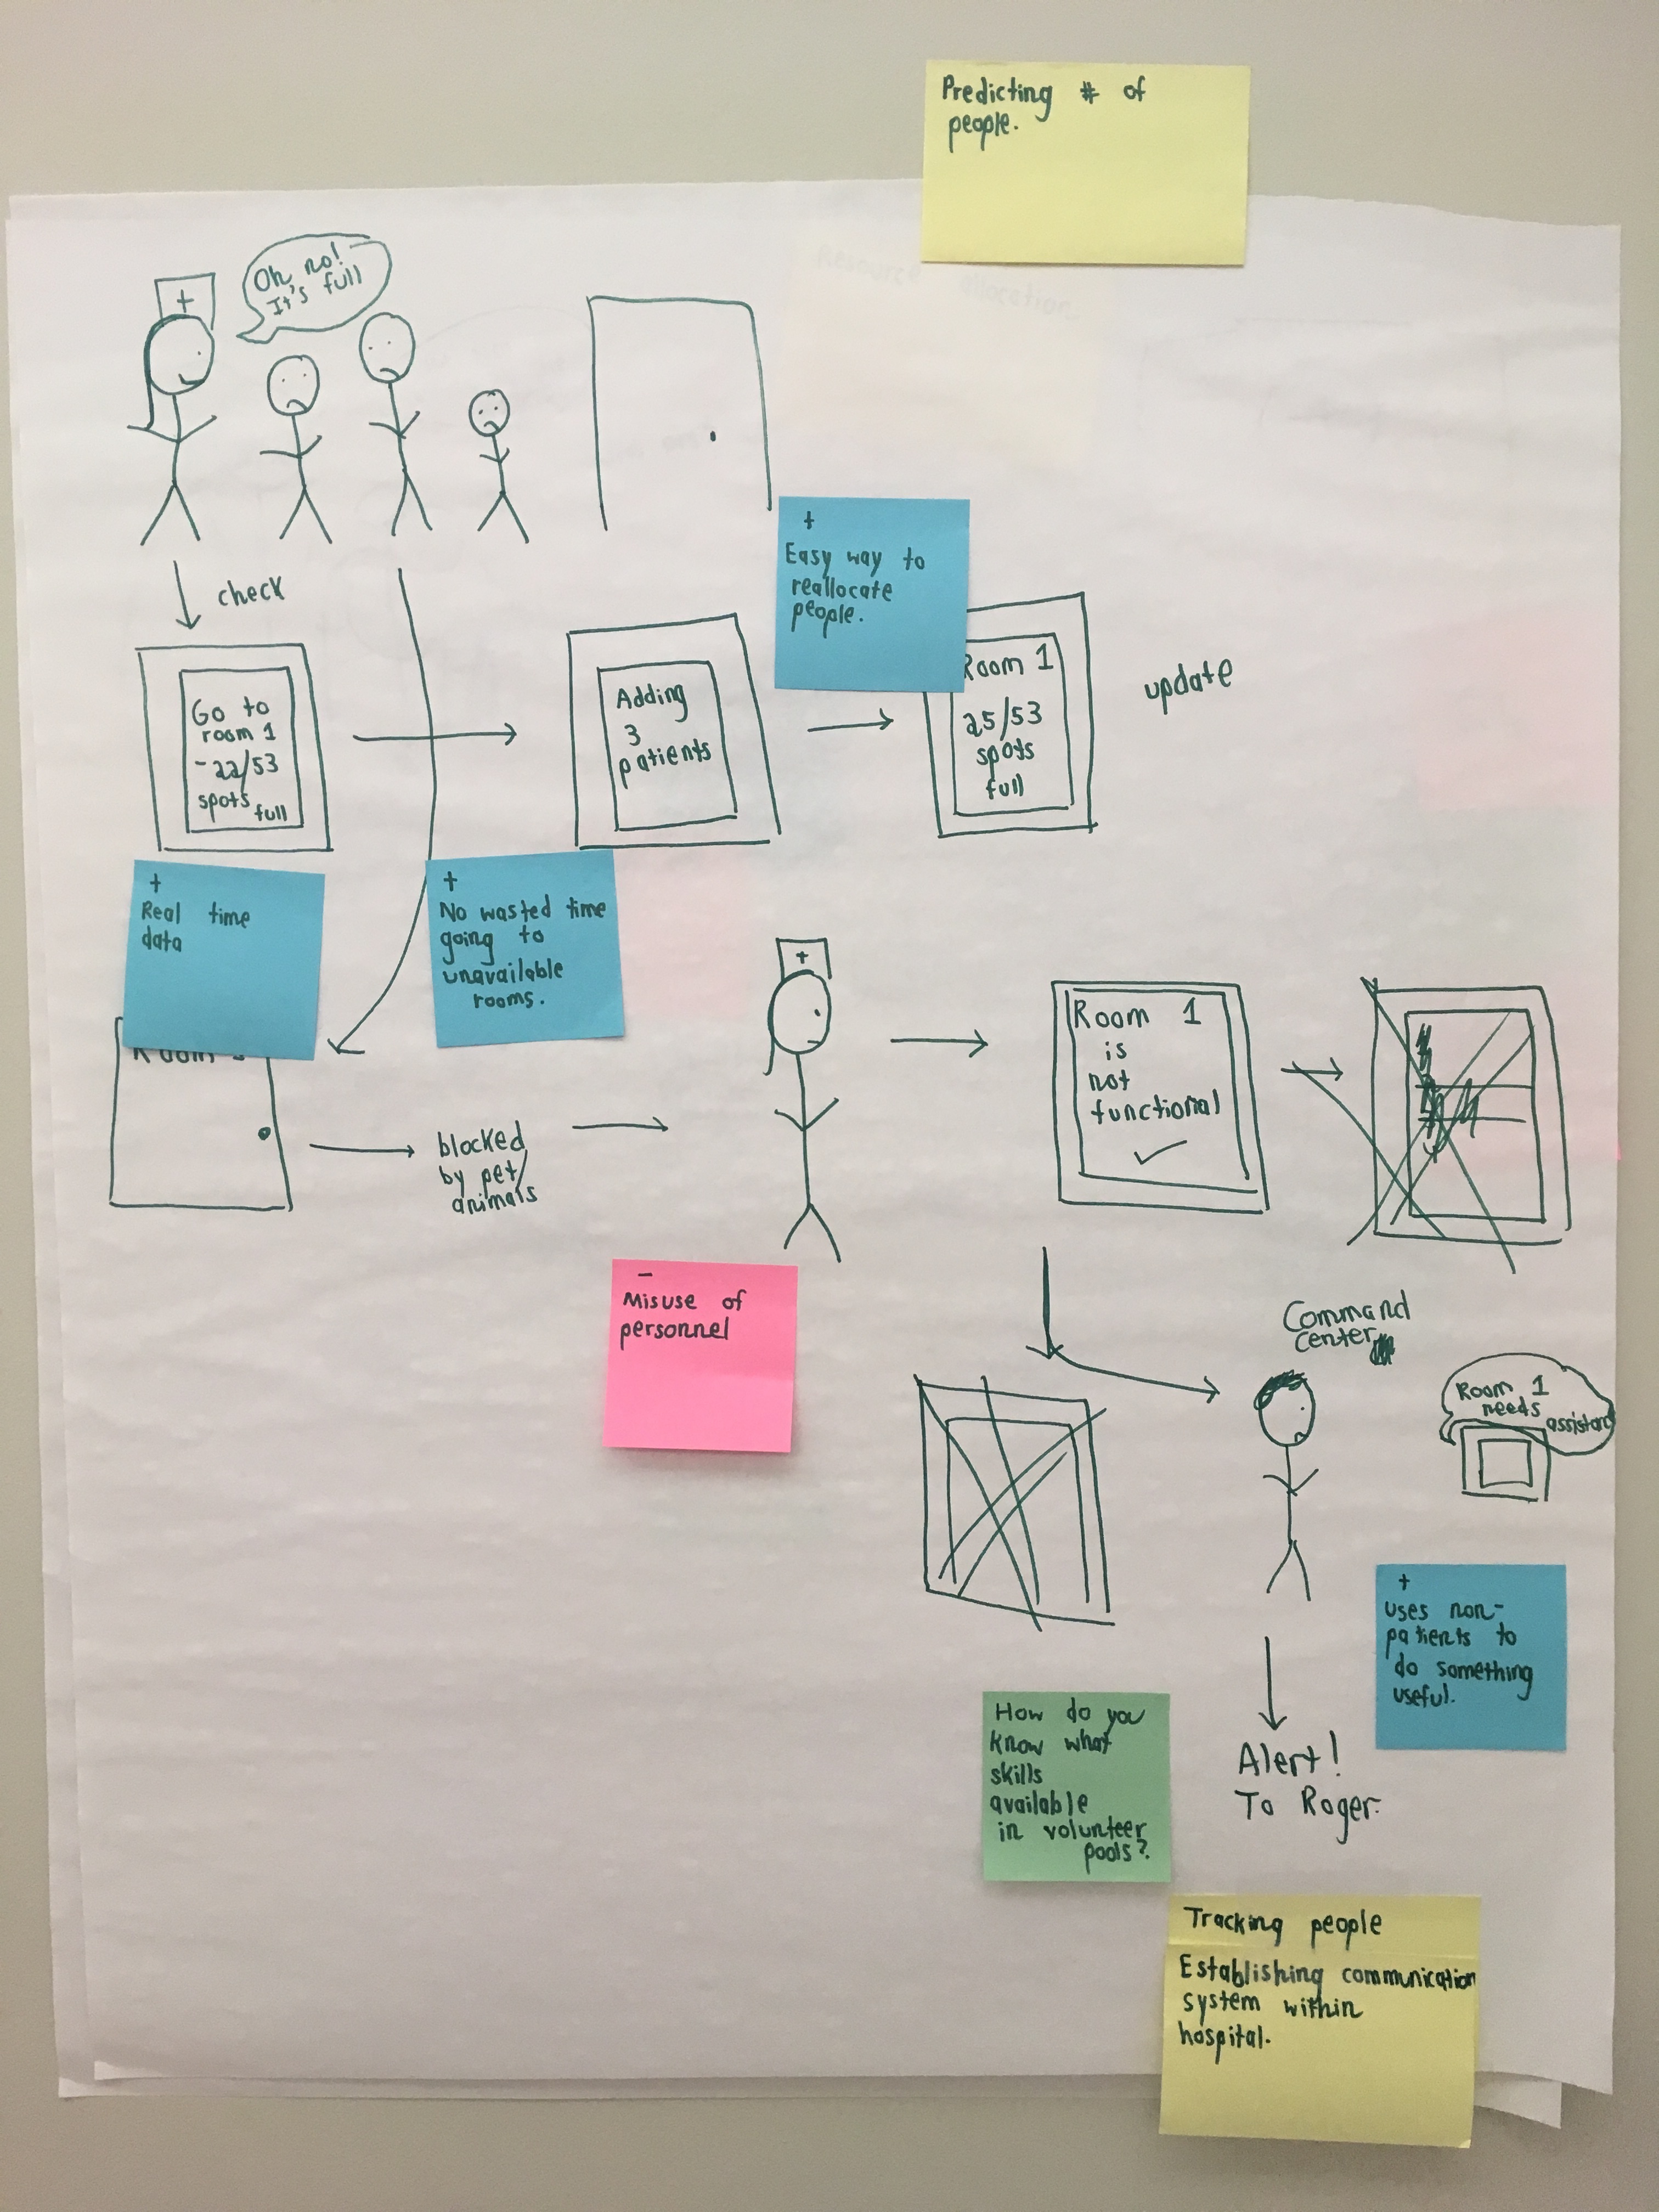 Predicting # of
people.
Resource allocation
Oh no!
It's full
+
check
+
Easy way to
reallocate
people.
Go to
room 1
-22/53
spots
full
Adding
3
patients
Room 1
25/53
spots
full
update
+
Real time
data
+
No wasted time
going to
unavailable
rooms.
Room
blocked
by pet/
animals
+
Room 1
is
not
functional
-
Misuse of
personnel
Command
center
Room 1
needs
+
uses non-
patients to
do something
useful.
How do you
know what
skills
available
in volunteer
pools?
Alert!
To Roger.
Tracking people
Establishing communication
system within
hospital.